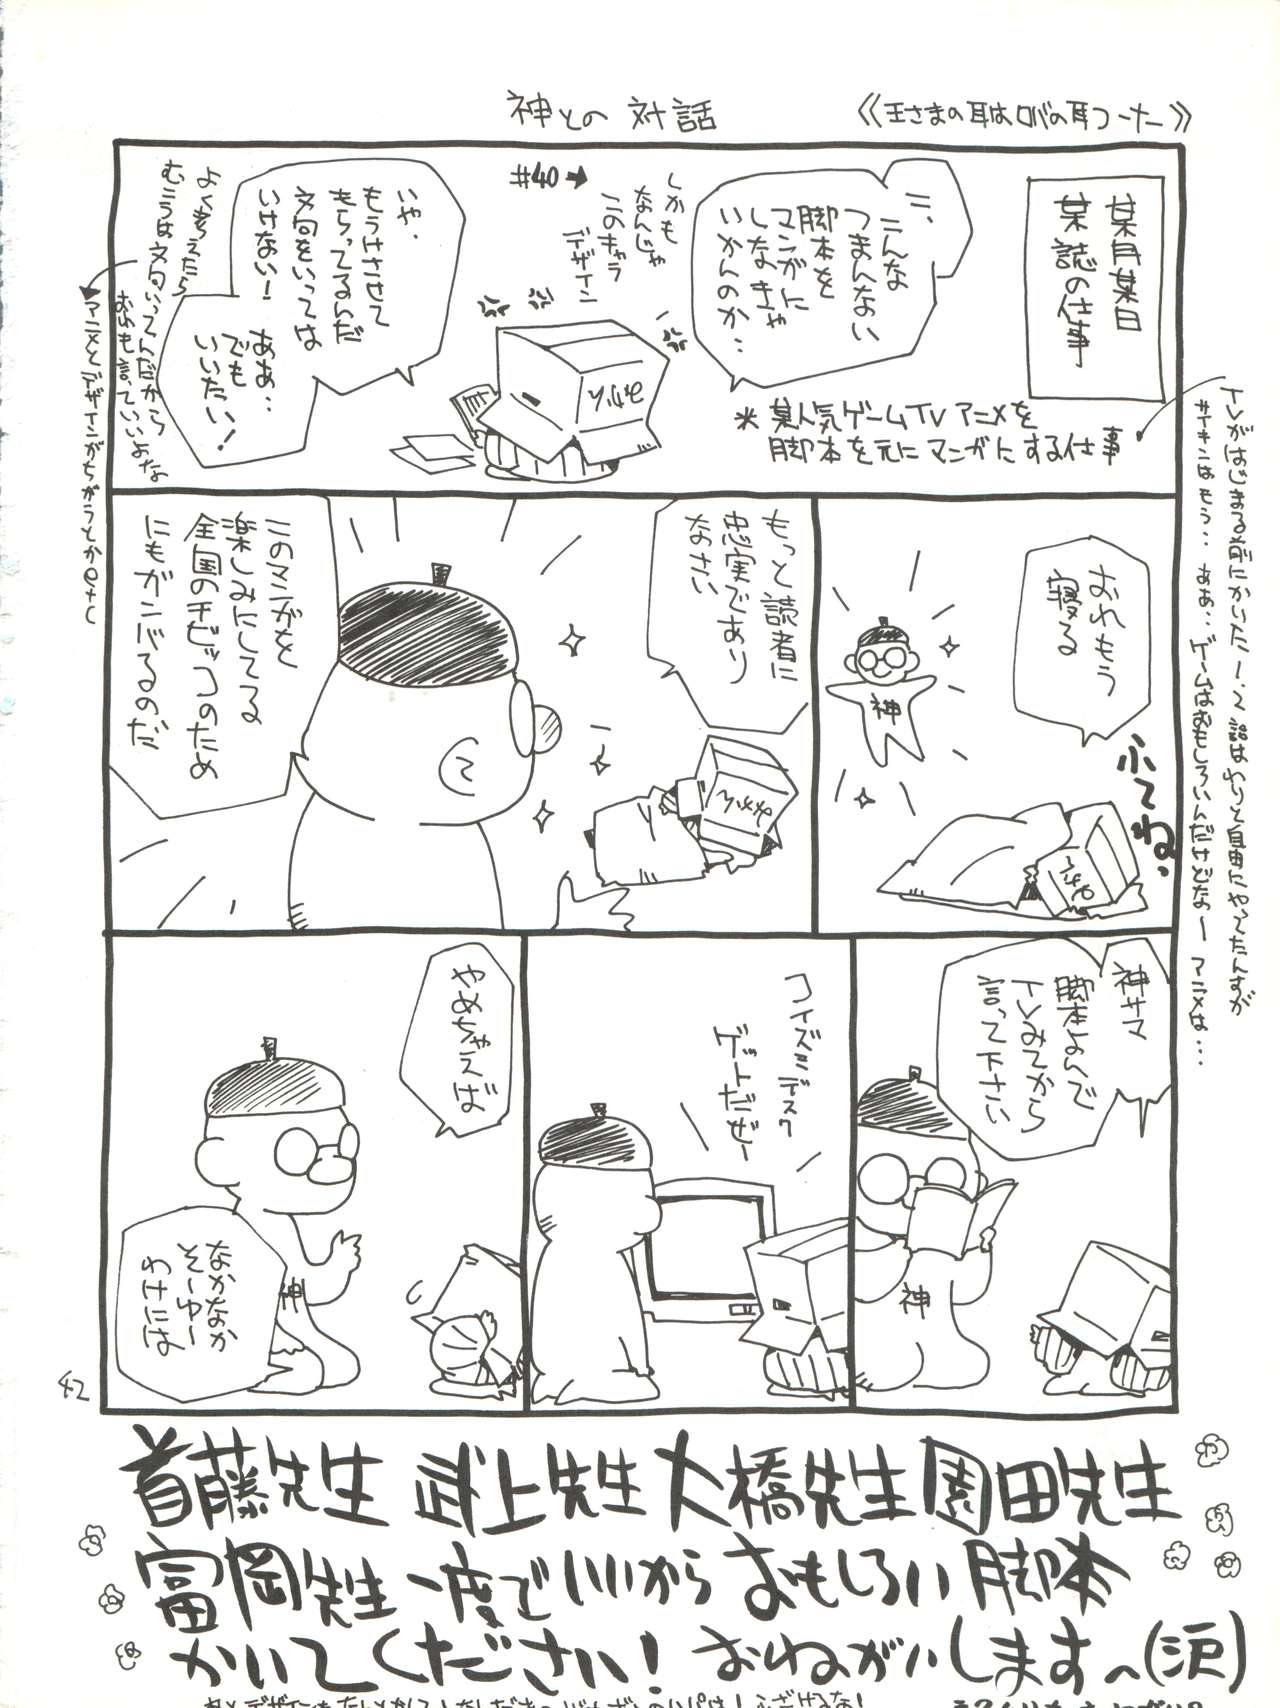 神との対話
《王さまの耳はロバの耳つーたー》
某月某日
某誌の仕事
こ、
こんな
つまんない
脚本を
マンガに
しなきゃ
いかんのか…
＊某人気ゲームTVアニメを
脚本を元にマンガにする仕事
TVがはじまる前にかいた
しかも
なんじゃ
このキャラ
デザイン
#40→
いや、
もうけさせて
もらってるんだ
文句をいっては
いけない！
ああ…
でも
いいたい！
よく考えたら
むこうは文句いってんだから
おれも言っていいよな
アニメとデザインがちがうとかetc
おれもう
寝る
ふてね。
神
もっと読者に
忠実であり
なさい
このマンガを
楽しみにしてる
全国のチビッコのため
にもガンバるのだ
神サマ
脚本よんで
TVみてから
言って下さい
神
ゲットだぜー
やめちゃえば
神
なかなか
そーゆー
わけには
42
首藤先生 武上先生 大橋先生 園田先生
富岡先生 一度でいいから おもしろい脚本
かいてください！おねがいします〜(涙)